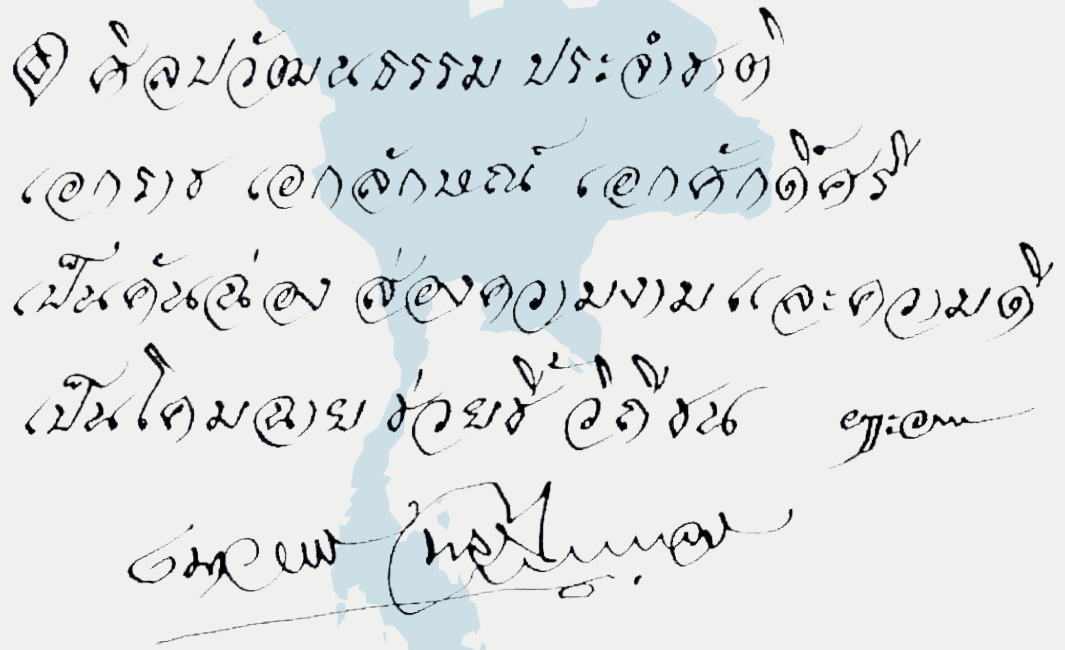 ๏ ศิลปวัฒนธรรม ประจำชาติ
เอกราช เอกลักษณ์ เอกศักดิ์ศรี
เป็นคันฉ่อง ส่องความงามและความดี
เป็นโคมฉาย ช่วยชี้ วิถีชน